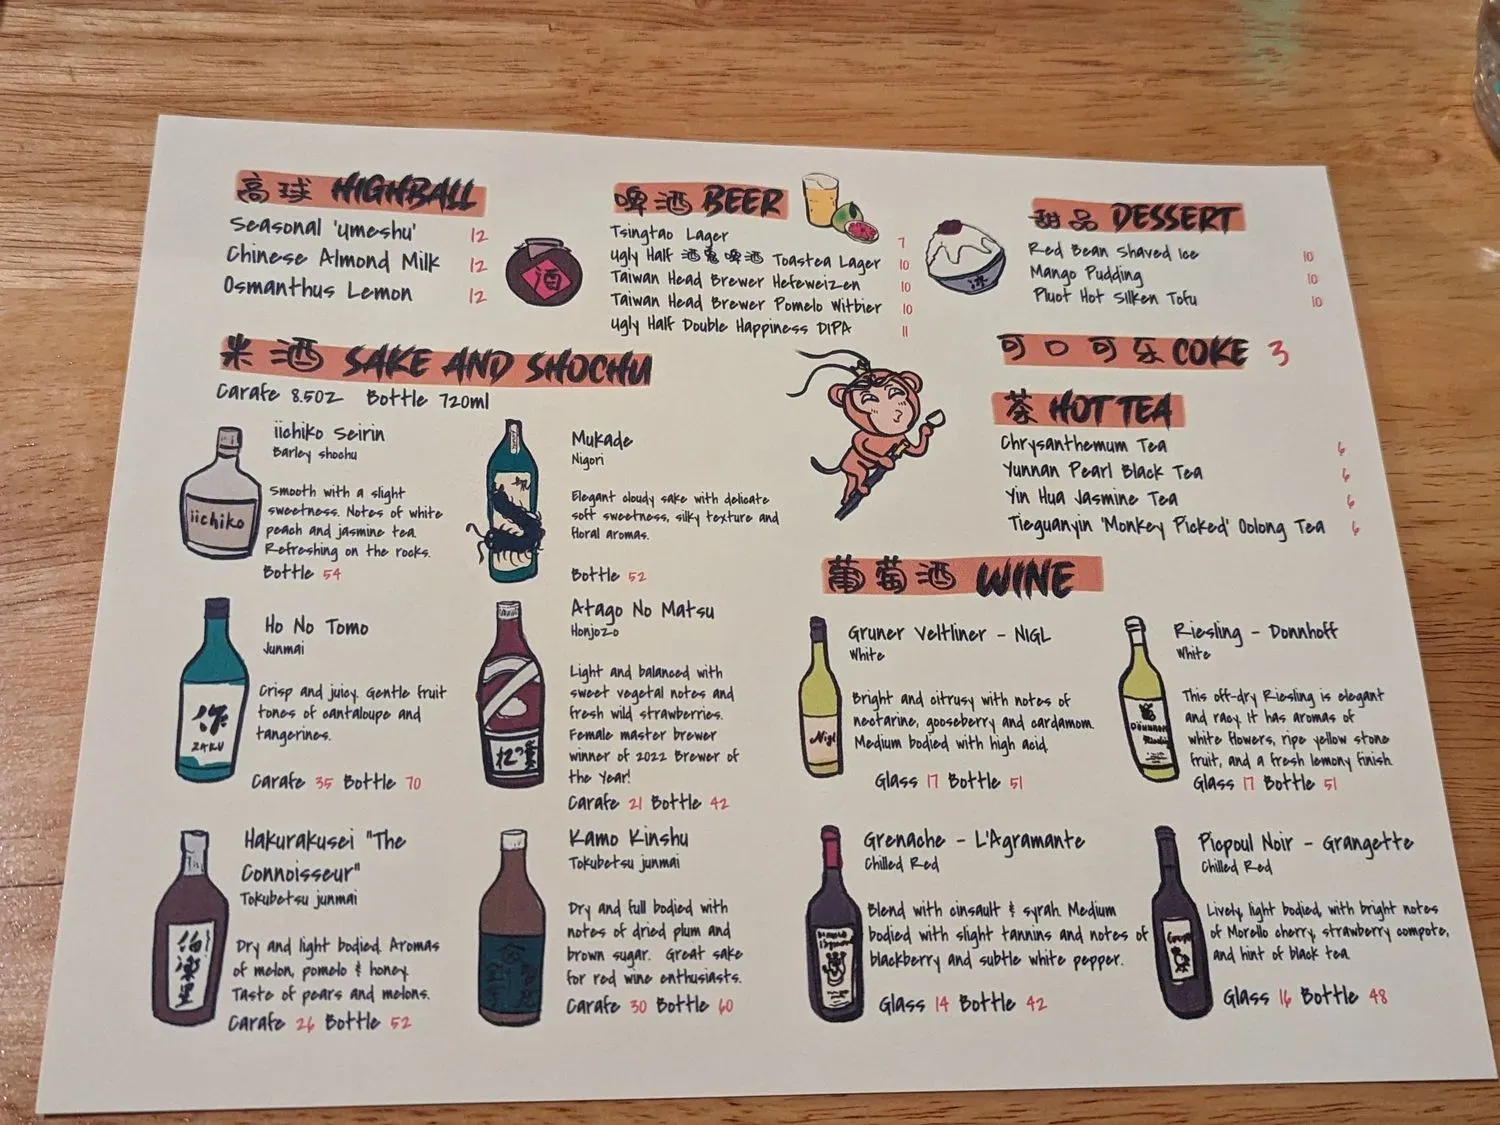 高球 HIGHBALL
Seasonal 'umeshu' 12
Chinese Almond Milk 12
Osmanthus Lemon 12
酒
啤酒 BEER
Tsingtao Lager 7
Ugly Half 酒鬼啤酒 Toastea Lager 10
Taiwan Head Brewer Hefeweizen 10
Taiwan Head Brewer Pomelo Witbier 10
Ugly Half Double Happiness DIPA 11
甜品 DESSERT
Red Bean Shaved Ice 10
Mango Pudding 10
Pluot Hot Silken Tofu 10
冰
可口可乐 COKE 3
茶 HOT TEA
Chrysanthemum Tea 6
Yunnan Pearl Black Tea 6
Yin Hua Jasmine Tea 6
Tieguanyin 'Monkey Picked' Oolong Tea 6
米酒 SAKE AND SHOCHU
Carafe 8.5oz Bottle 720ml
iichiko Seirin
Barley shochu
Smooth with a slight
sweetness. Notes of white
peach and jasmine tea.
Refreshing on the rocks.
Bottle 54
iichiko
Mukade
Nigori
Elegant cloudy sake with delicate
soft sweetness, silky texture and
floral aromas.
Bottle 52
Ho No Tomo
Junmai
Crisp and juicy. Gentle fruit
tones of cantaloupe and
tangerines.
Carafe 35 Bottle 70
ZAKU
Atago No Matsu
Honjozo
Light and balanced with
sweet vegetal notes and
fresh wild strawberries.
Female master brewer
winner of 2022 Brewer of
the Year!
Carafe 21 Bottle 42
Hakurakusei "The
Connoisseur"
Tokubetsu junmai
Dry and light bodied. Aromas
of melon, pomelo & honey.
Taste of pears and melons.
Carafe 26 Bottle 52
伯楽星
Kamo Kinshu
Tokubetsu junmai
Dry and full bodied with
notes of dried plum and
brown sugar. Great sake
for red wine enthusiasts.
Carafe 30 Bottle 60
葡萄酒 WINE
Gruner Veltliner - NIGL
White
Bright and citrusy with notes of
nectarine, gooseberry and cardamom.
Medium bodied with high acid.
Glass 17 Bottle 51
Nigl
Riesling - Donnhoff
White
This off-dry Riesling is elegant
and racy. It has aromas of
white flowers, ripe yellow stone
fruit, and a fresh lemony finish.
Glass 17 Bottle 51
Grenache - L'Agramante
Chilled Red
Blend with cinsault & syrah. Medium
bodied with slight tannins and notes of
blackberry and subtle white pepper.
Glass 14 Bottle 42
Picpoul Noir - Grangette
Chilled Red
Lively, light bodied, with bright notes
of Morello cherry, strawberry compote,
and hint of black tea.
Glass 16 Bottle 48